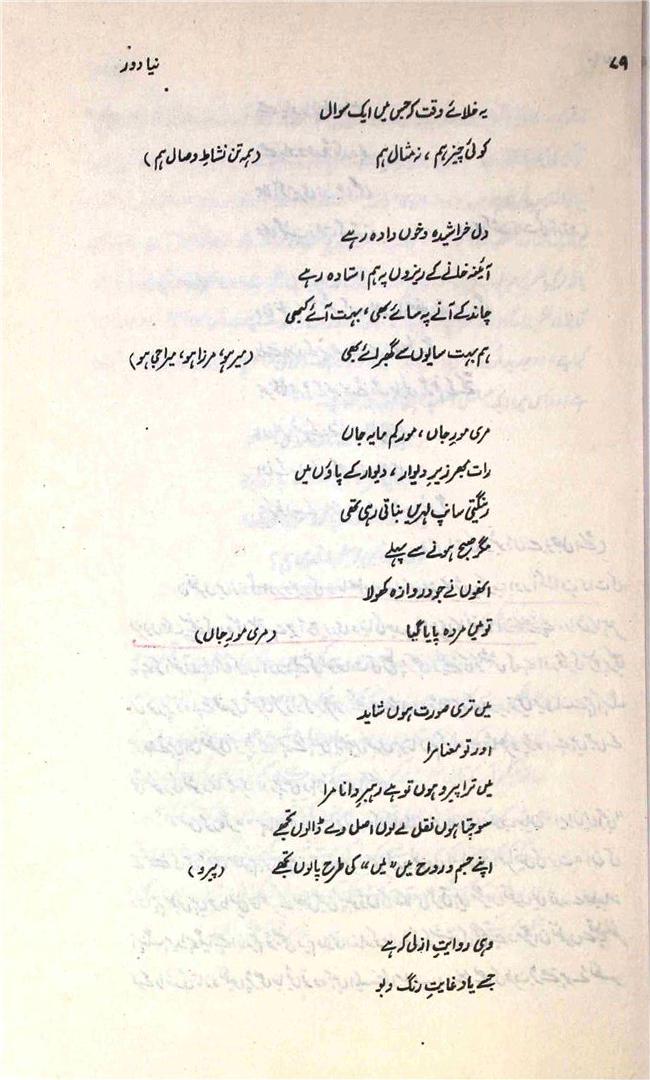 ۷۹
نیا دور
یہ خلائے وقت کہ جس میں ایک سوال
کوئی چیز ہم، نہ مثال ہم (ہمہ تن نشاطِ وصال ہم)
دل خراشیدہ و خوں دادہ رہے
آئینہ خانے کے ریزوں پہ ہم استادہ رہے
چاند کے آنے پہ سائے بھی، بہت آئے کبھی
ہم بہت سایوں سے گھبرائے بھی (میر ہو، مرزا ہو، میرا جی ہو)
مری مورِ جاں، مورِ کم مایہ جاں
رات بھر زیرِ دیوار، دیوار کے پاؤں میں
رینگتی سانپ لہریں بناتی رہی تھی
مگر صبح ہونے سے پہلے
انھوں نے جو دروازہ کھولا
تو میں مردہ پایا گیا (مری مورِ جاں)
میں تری صورت ہوں شاید
اور تو معنا مرا
میں ترا پیرو ہوں تو ہے رہبرِ دانا مرا
سوچتا ہوں نقل لے لوں اصل دے ڈالوں تجھے
اپنے جسم و روح میں "میں" کی طرح پالوں تجھے (پیرو)
وہی روایتِ ازلی کہ ہے
جسے یاد غایتِ رنگ و بو